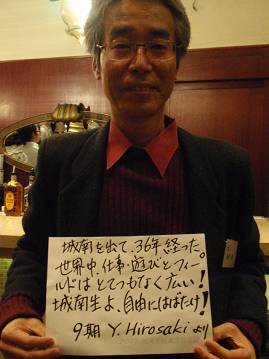 城南を出て、36年経った。
世界中、仕事・遊びとフィー
ルドはとてつもなく広い!
城南生よ、自由にはばたけ!
9期 Y.Hirosaki より